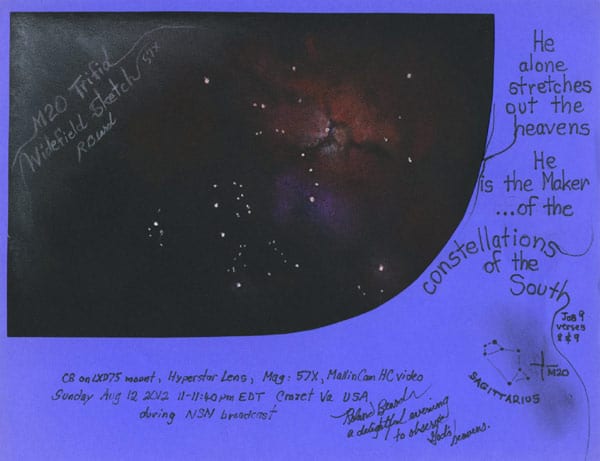 M20 Trifid
Widefield Sketch 57X
He
alone
stretches
out the
heavens
He
is the Maker
...of the
constellations
of the
South
Job 9
verses
8 & 9
M20
SAGITTARIUS
C8 on LXD75 mount, Hyperstar Lens, Mag: 57X, MallinCam HC video
Sunday Aug 12 2012 11-11:40pm EDT Crozet Va USA
during NSN broadcast
a delightful evening
to observe
God's
heavens.